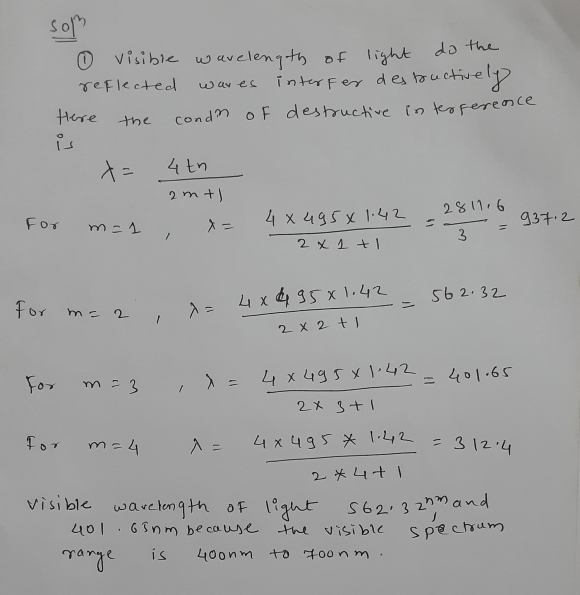 Solⁿ
① Visible wavelength of light do the
reflected waves interfer destructively
Here the condⁿ of destructive interference
is
λ = 4tn / 2m+1
For m=1, λ = 4×495×1.42 / 2×1+1 = 2811.6 / 3 = 937.2
For m=2, λ = 4×495×1.42 / 2×2+1 = 562.32
For m=3, λ = 4×495×1.42 / 2×3+1 = 401.65
For m=4 λ = 4×495*1.42 / 2*4+1 = 312.4
Visible wavelength of light 562.32nm and
401.65nm because the visible spectrum
range is 400nm to 700nm.